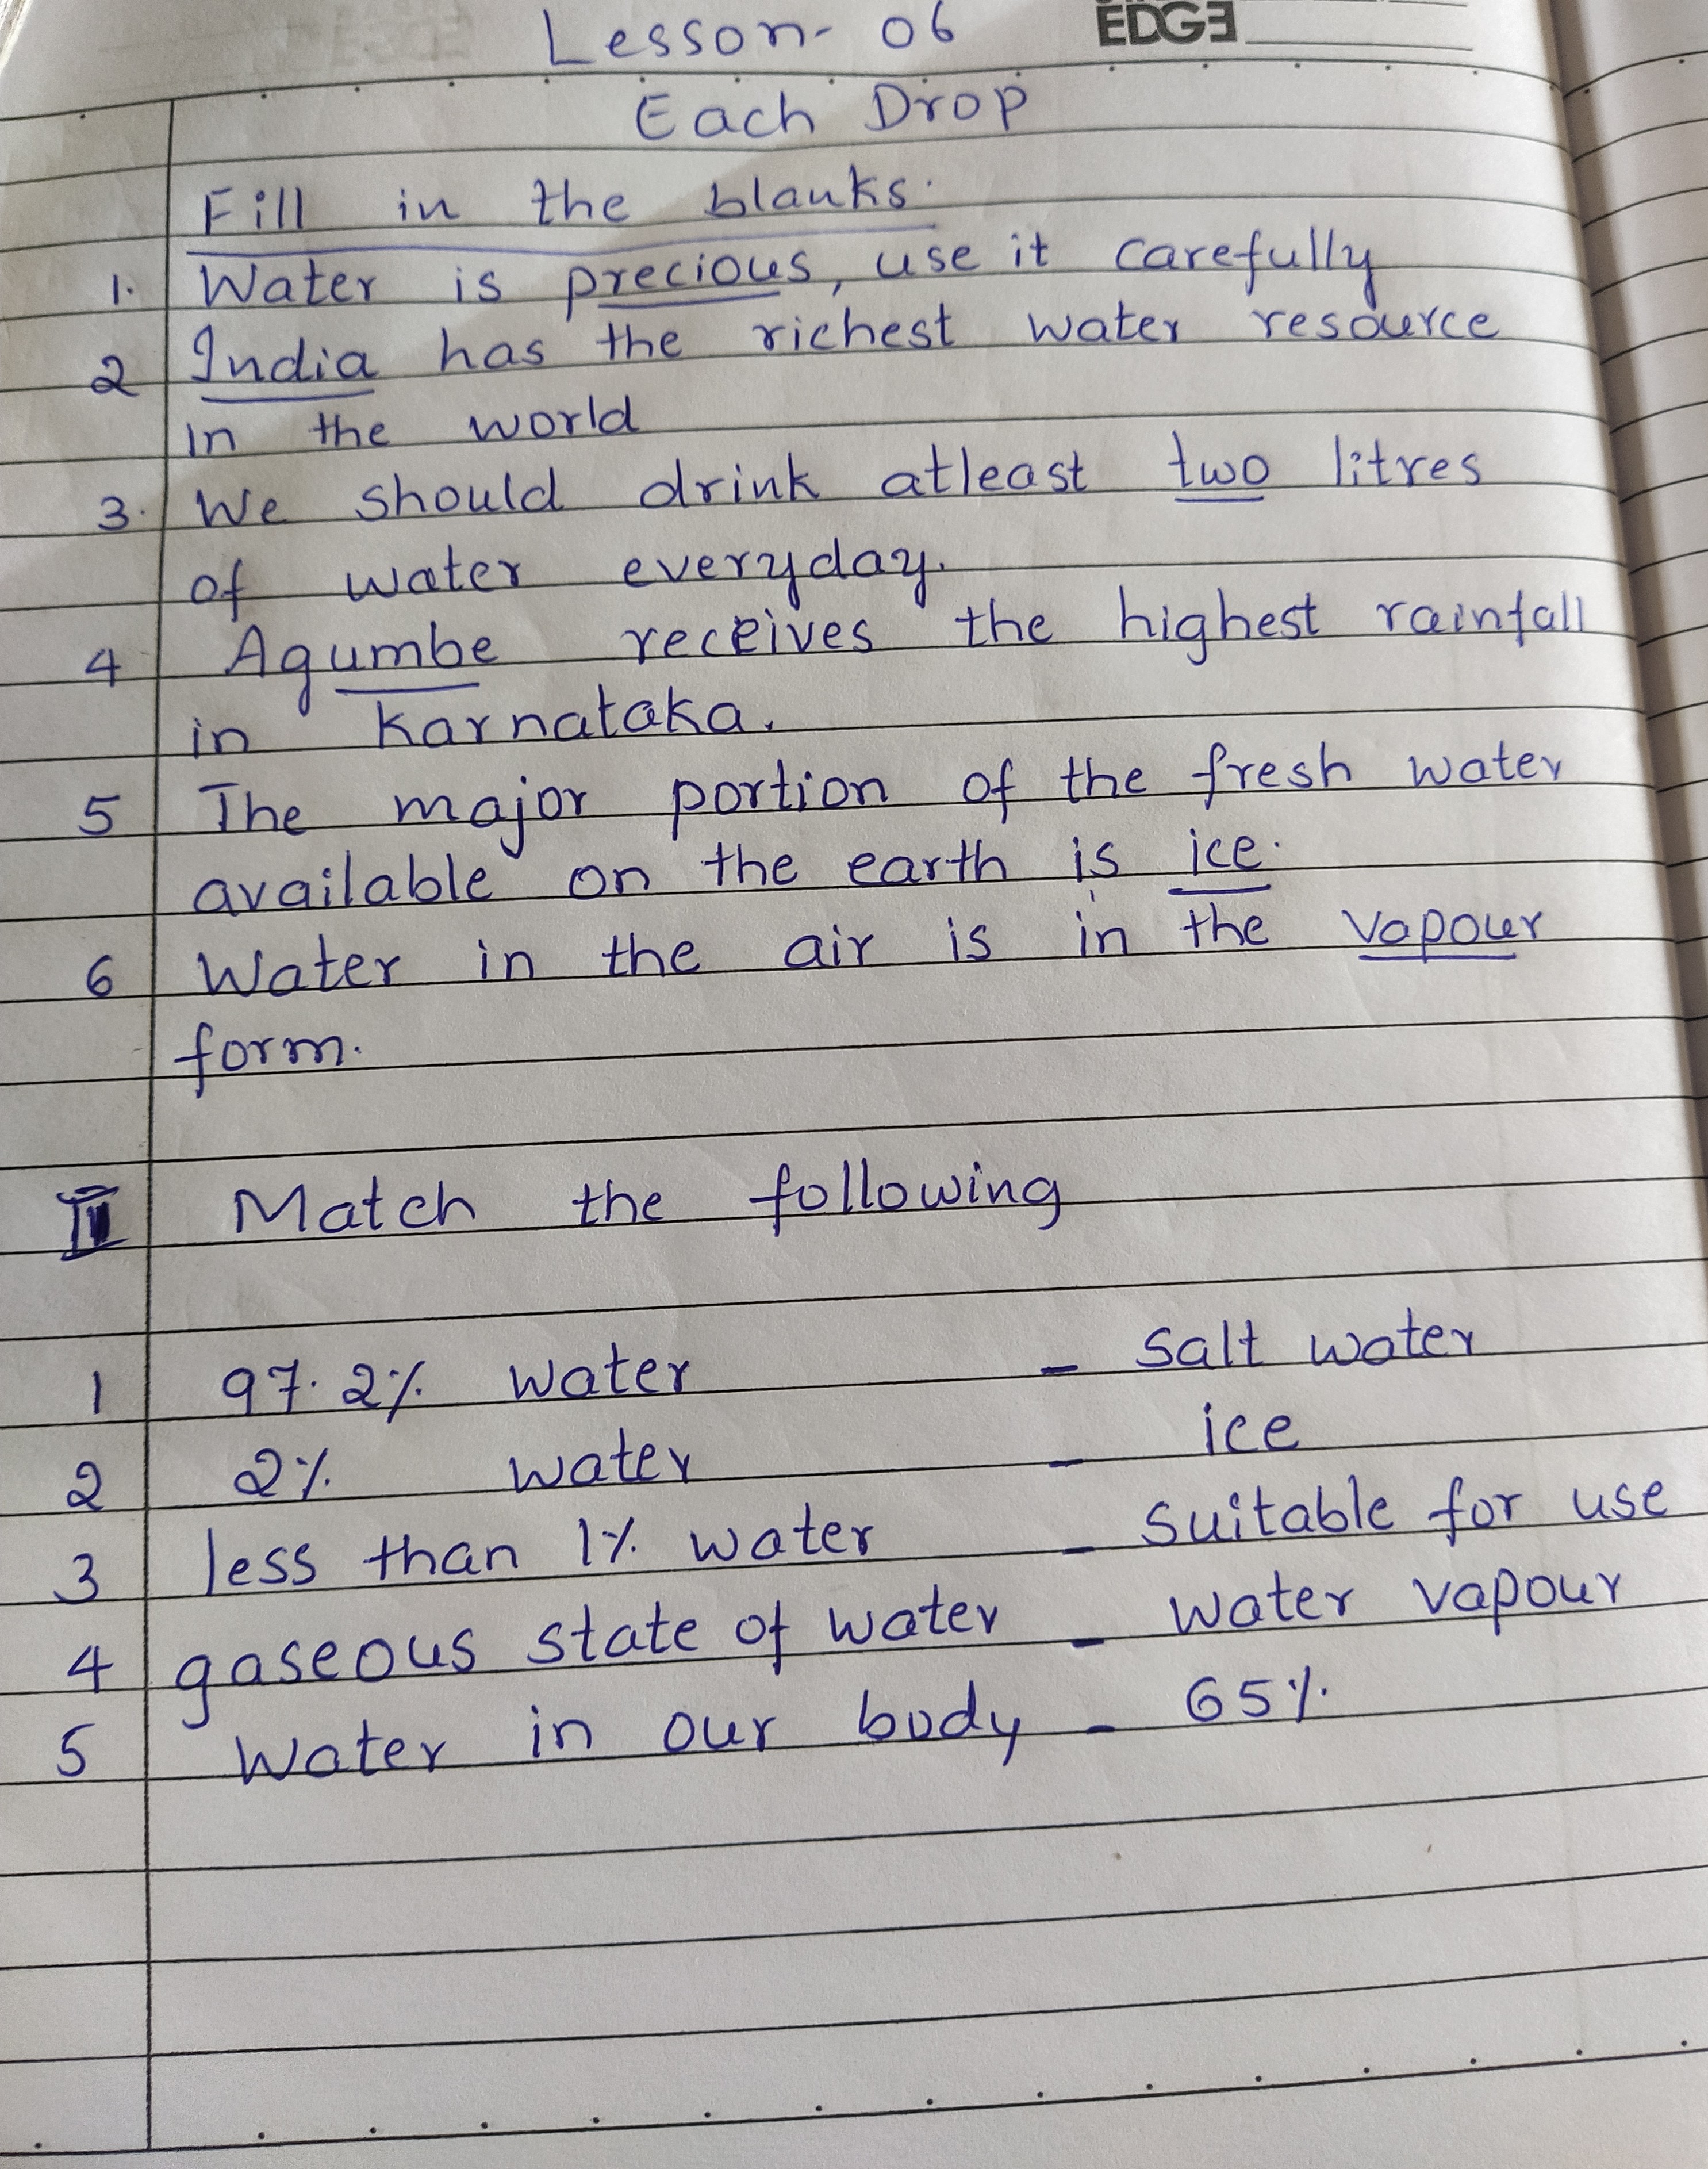 Lesson- 06
EDGE
Each Drop
Fill in the blanks.
1. Water is precious, use it carefully
2 India has the richest water resource
in the world
3. We should drink atleast two litres
of water everyday.
4 Agumbe receives the highest rainfall
in Karnataka.
5 The major portion of the fresh water
available on the earth is ice.
6 Water in the air is in the vapour
form.
II Match the following
1 97.2% water - salt water
2 2% water - ice
3 less than 1% water - suitable for use
4 gaseous state of water - water vapour
5 Water in our body - 65%